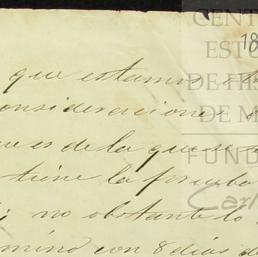 CENT
EST
DE HIS
DE M
FUND
18
que estamos
onsideraciones
es de la que se
tiene la prueba
; no obstante lo
mino con 8 dias de